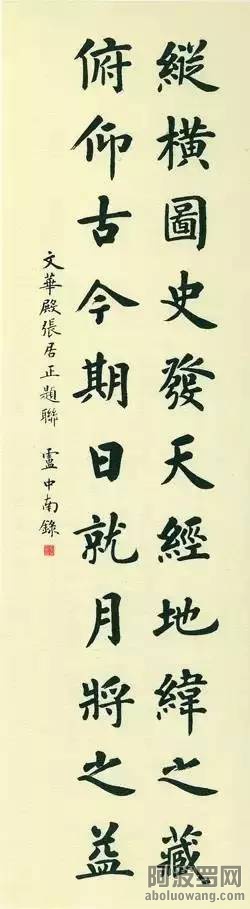 縱橫圖史發天經地緯之藏
俯仰古今期日就月將之益
文華殿張居正題聯 盧中南錄
阿波罗网
aboluowang.com